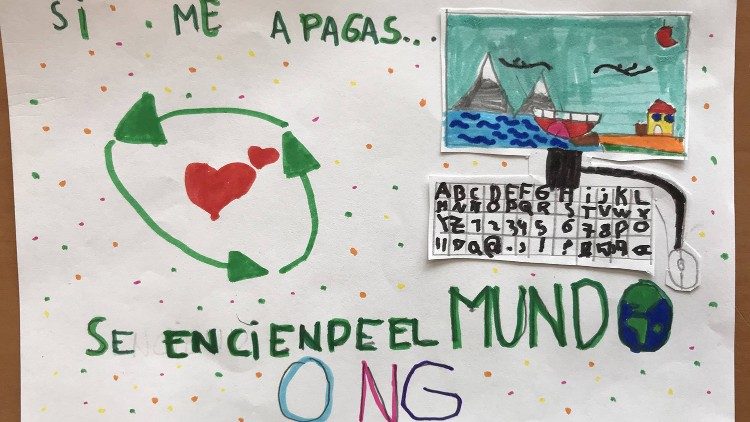 SÍ ME APAGAS...
A B C D E F G H i j K L
M N Ñ O P Q R S T V W X
Y Z 1 2 3 4 5 6 7 8 9 0
SE ENCiENDE EL MUNDO
ONG